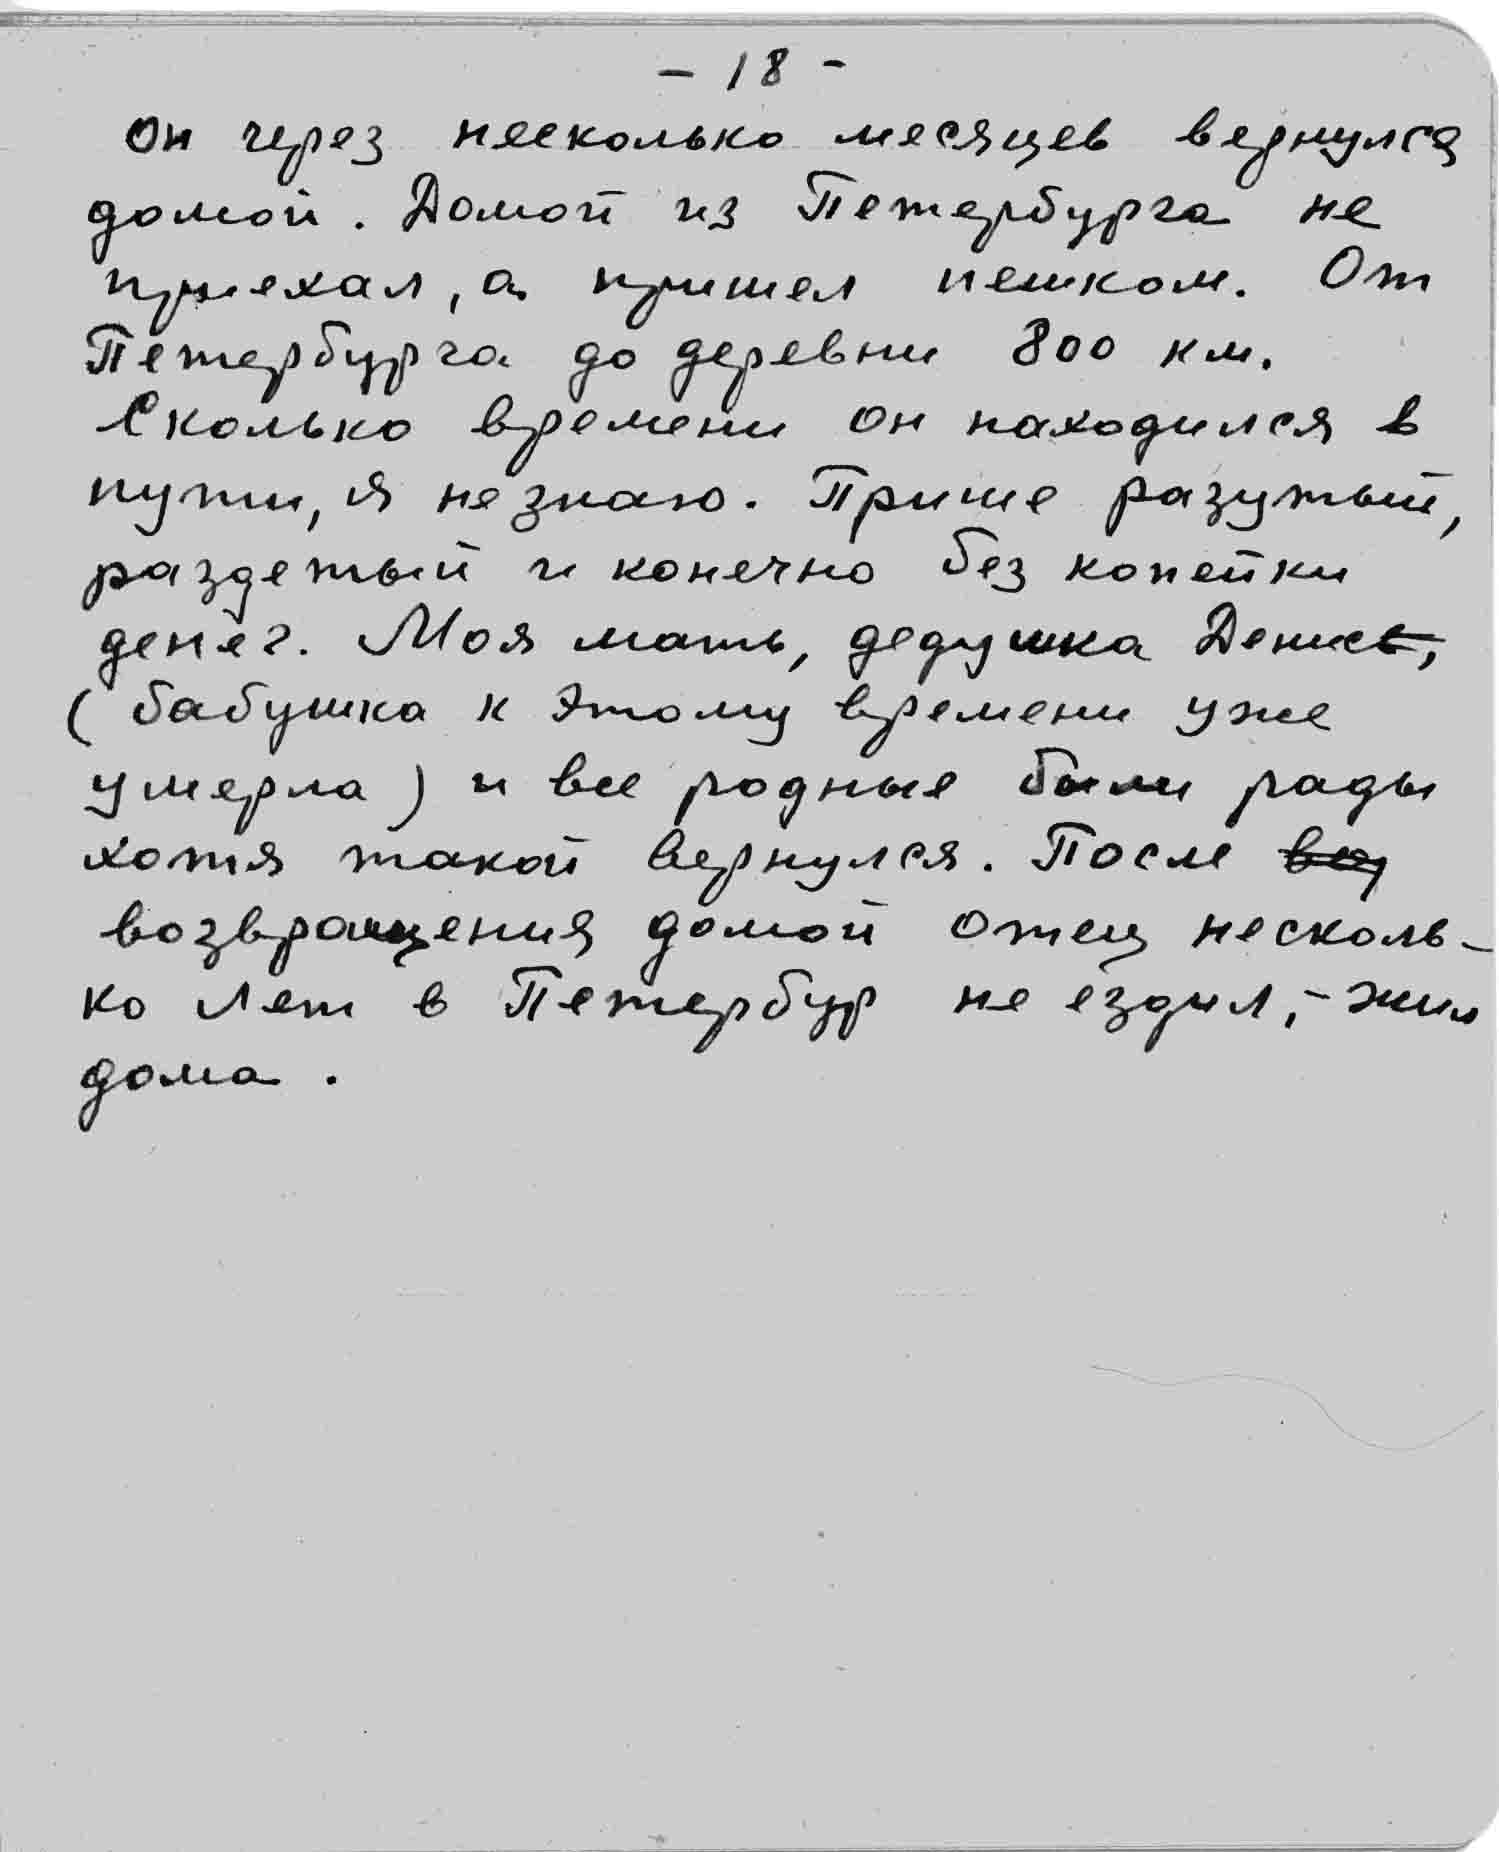 - 18 -
Он через несколько месяцев вернулся
домой. Домой из Петербурга не
приехал, а пришел пешком. От
Петербурга до деревни 800 км.
Сколько времени он находился в
пути, я не знаю. Прише разутый,
раздетый и конечно без копейки
денег. Моя мать, дедушка Денис,
(бабушка к этому времени уже
умерла) и все родные были рады
хотя такой вернулся. После
возвращения домой отец несколь-
ко лет в Петербур не ездил, - жил
дома.